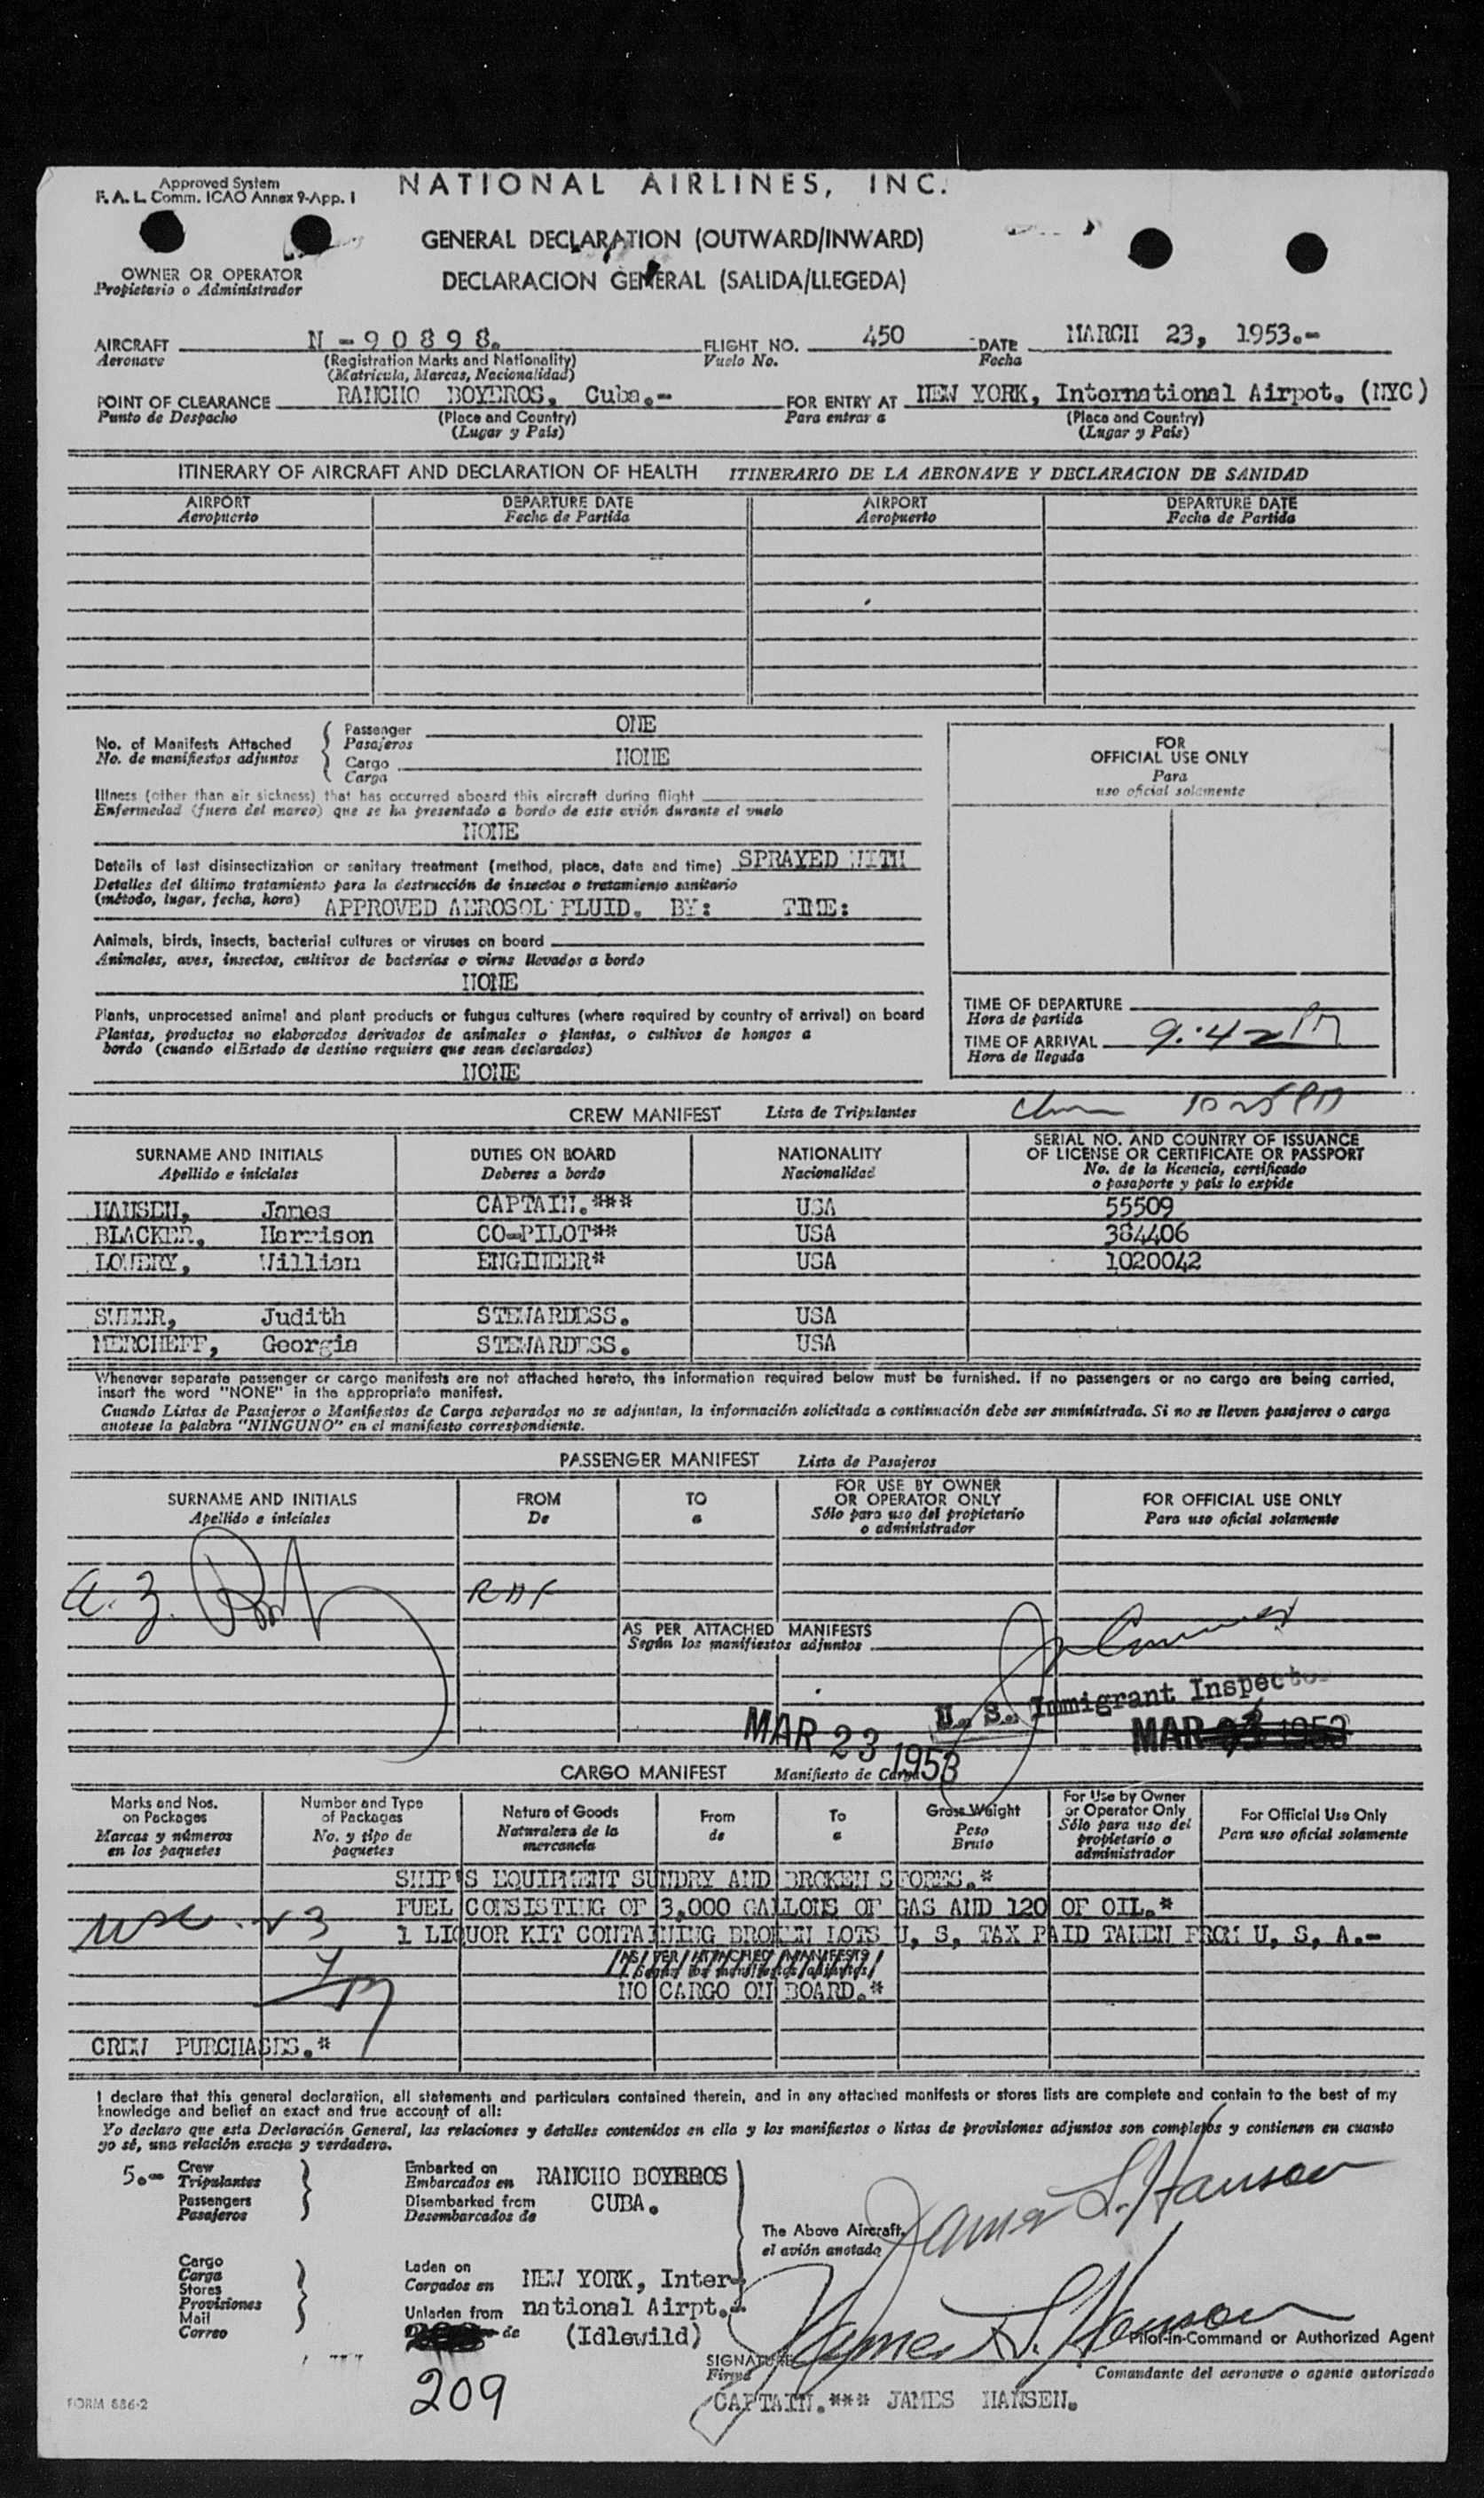 Approved System
F. A. L. Comm. ICAO Annex 9-App. 1
NATIONAL AIRLINES, INC.
GENERAL DECLARATION (OUTWARD/INWARD)
DECLARACION GENERAL (SALIDA/LLEGEDA)
OWNER OR OPERATOR
Propietario o Administrador
AIRCRAFT N-90898. FLIGHT NO. 450 DATE MARCH 23, 1953.-
Aeronave (Registration Marks and Nationality) Vuelo No. Fecha
(Matricula, Marcas, Nacionalidad)
POINT OF CLEARANCE RANCHO BOYEROS, Cuba.- FOR ENTRY AT NEW YORK, International Airpot. (NYC)
Punto de Despacho (Place and Country) Para entrar a (Place and Country)
(Lugar y País) (Lugar y País)
ITINERARY OF AIRCRAFT AND DECLARATION OF HEALTH ITINERARIO DE LA AERONAVE Y DECLARACION DE SANIDAD
AIRPORT DEPARTURE DATE AIRPORT DEPARTURE DATE
Aeropuerto Fecha de Partida Aeropuerto Fecha de Partida
No. of Manifests Attached Passenger ONE
No. de manifiestos adjuntos Pasajeros
Cargo NONE
Carga
FOR
OFFICIAL USE ONLY
Para
uso oficial solamente
Illness (other than air sickness) that has occurred aboard this aircraft during flight
Enfermedad (fuera del mareo) que se ha presentado a bordo de este avión durante el vuelo
NONE
Details of last disinsectization or sanitary treatment (method, place, date and time) SPRAYED WITH
Detalles del último tratamiento para la destrucción de insectos o tratamiento sanitario
(método, lugar, fecha, hora) APPROVED AEROSOL FLUID. BY: TIME:
Animals, birds, insects, bacterial cultures or viruses on board
Animales, aves, insectos, cultivos de bacterias o virus llevados a bordo
NONE
Plants, unprocessed animal and plant products or fungus cultures (where required by country of arrival) on board
Plantas, productos no elaborados derivados de animales o plantas, o cultivos de hongos a
bordo (cuando elEstado de destino requiere que sean declarados)
NONE
TIME OF DEPARTURE
Hora de partida
TIME OF ARRIVAL 9:42 PM
Hora de llegada
CREW MANIFEST Lista de Tripulantes
SURNAME AND INITIALS DUTIES ON BOARD NATIONALITY SERIAL NO. AND COUNTRY OF ISSUANCE
OF LICENSE OR CERTIFICATE OR PASSPORT
Apellido e iniciales Deberes a bordo Nacionalidad No. de la licencia, certificado
o pasaporte y país lo expide
HANSEN, James CAPTAIN.*** USA 55509
BLACKER, Harrison CO-PILOT** USA 384406
LOWERY, Willian ENGINEER* USA 1020042
Judith STEWARDESS. USA
MERCHEFF, Georgia STEWARDESS. USA
Whenever separate passenger or cargo manifests are not attached hereto, the information required below must be furnished. If no passengers or no cargo are being carried,
insert the word "NONE" in the appropriate manifest.
Cuando Listas de Pasajeros o Manifiestos de Carga separados no se adjuntan, la información solicitada a continuación debe ser suministrada. Si no se lleven pasajeros o carga
anotese la palabra "NINGUNO" en el manifiesto correspondiente.
PASSENGER MANIFEST Lista de Pasajeros
SURNAME AND INITIALS FROM TO FOR USE BY OWNER
OR OPERATOR ONLY FOR OFFICIAL USE ONLY
Apellido e iniciales De a Sólo para uso del propietario
o administrador Para uso oficial solamente
AS PER ATTACHED MANIFESTS
Según los manifiestos adjuntos
U. S. Immigrant Inspector
MAR 23 1953
MAR 1953
CARGO MANIFEST Manifiesto de Carga
Marks and Nos.
on Packages
Marcas y números
en los paquetes
Number and Type
of Packages
No. y tipo de
paquetes
Nature of Goods
Naturaleza de la
mercancia
From
de
To
a
Gross Weight
Peso
Bruto
For Use by Owner
or Operator Only
Sólo para uso del
propietario o
administrador
For Official Use Only
Para uso oficial solamente
SHIP'S EQUIPMENT SUNDRY AND BROKEN STORES.*
FUEL CONSISTING OF 3,000 GALLONS OF GAS AND 120 OF OIL.*
1 LIQUOR KIT CONTAINING BROKEN LOTS U, S, TAX PAID TAKEN FROM U, S, A.-
AS PER ATTACHED MANIFESTS
Según los manifiestos adjuntos
NO CARGO ON BOARD.*
CREW PURCHASES.*
I declare that this general declaration, all statements and particulars contained therein, and in any attached manifests or stores lists are complete and contain to the best of my
knowledge and belief an exact and true account of all:
Yo declaro que esta Declaración General, las relaciones y detalles contenidos en ella y los manifiestos o listas de provisiones adjuntos son completos y contienen en cuanto
yo sé, una relación exacta y verdadera.
5.-- Crew
Tripulantes
Passengers
Pasajeros
Embarked on RANCHO BOYEROS
Embarcados en
Disembarked from CUBA.
Desembarcados de
The Above Aircraft,
el avión anotado
James S. Hanson
Cargo
Carga
Stores
Provisiones
Mail
Correo
Laden on
Cargados en NEW YORK, Inter-
Unladen from national Airpt.-
de (Idlewild)
James S. Hanson
Pilot-in-Command or Authorized Agent
SIGNATURE
Firma Comandante del aeronave o agente autorizado
CAPTAIN.*** JAMES HANSEN.
209
FORM 686-2